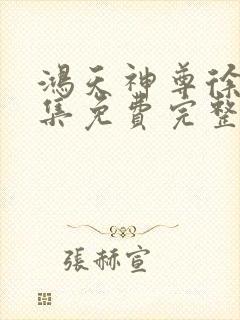 鴻天神尊徐
集免費完整
張赫宣